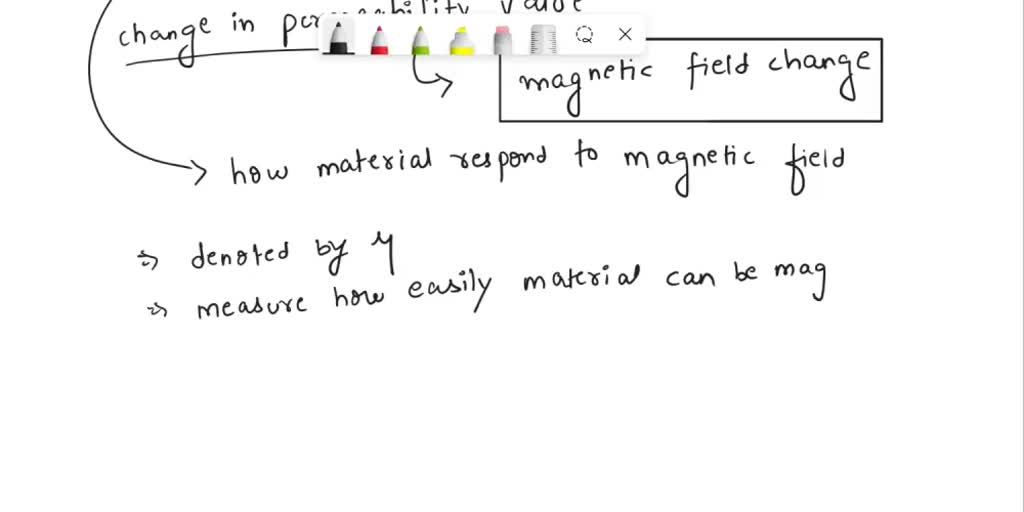 change in permeability value
magnetic field change
how material respond to magnetic field
denoted by μ
measure how easily material can be mag